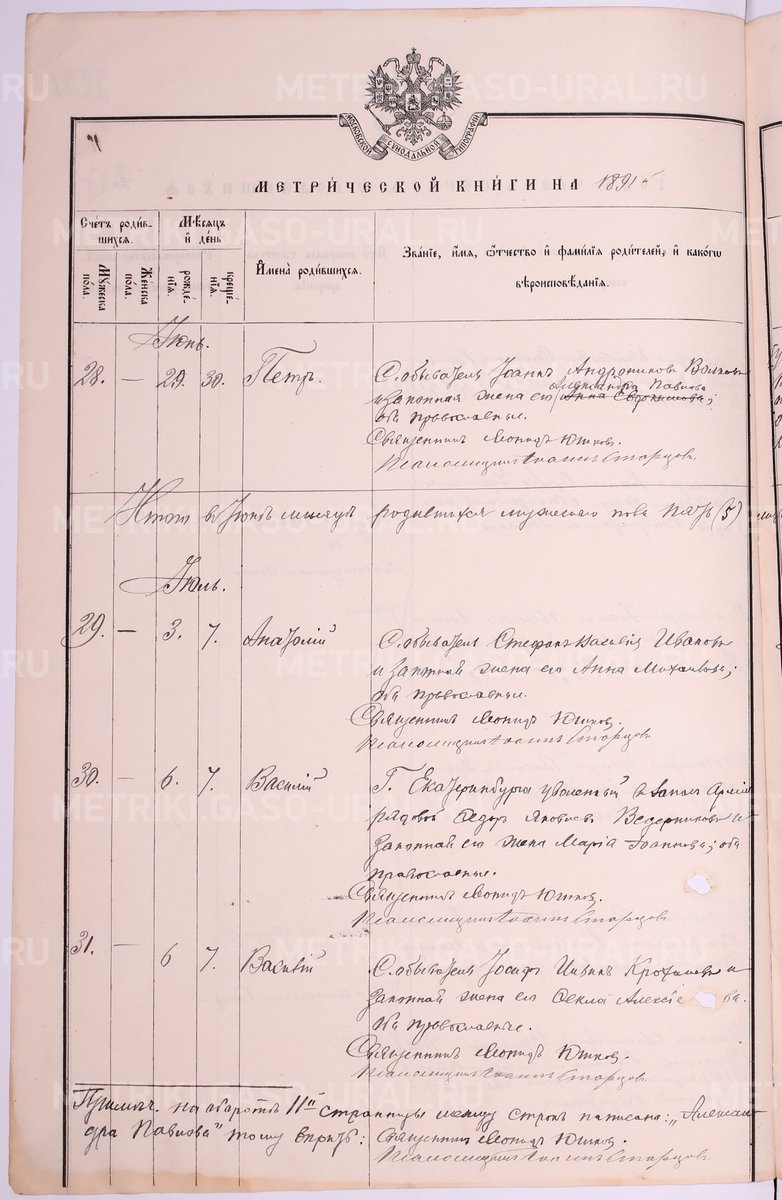 МОСКОВСКОЙ СѴНОДАЛЬНОЙ ТИПОГРАФІИ
МЕТРИ́ЧЕСКОЙ КНИ́ГИ НА 1891 г
Сче́тъ роди́вшихся.
Мѣ́сяцъ и҆ де́нь
И҆мена̀ роди́вшихся.
Зва́нїе, и҆́мѧ, ѻ҆́тчество и҆ фами́лїѧ роди́телей, и҆ како́гѡ вѣроисповѣ́данїѧ.
Мꙋ́жеска по́ла.
Же́нска по́ла.
рожде́нїѧ.
креще́нїѧ.
Іюнь.
28. — 29. 30. Петръ. С. обыватель Іоаннъ Андрониковъ Волковъ
Александра Павлова
и законная жена его Анна Евдокимова;
оба православные.
Священникъ Леонидъ Юшковъ.
Псаломщикъ Старцовъ.
Итого въ Іюнѣ мѣсяцѣ родившихся мужескаго пола пять (5)
Іюль.
29. — 3. 7. Анатолій С. обыватель Стефанъ Василіевъ Ивановъ
и законная жена его Анна Михайлова;
оба православные.
Священникъ Леонидъ Юшковъ.
Псаломщикъ Старцовъ.
30. — 6. 7. Василій Г. Екатеринбурга уволенный въ запасъ арміи
рядовой Ѳедоръ Яковлевъ Ведерниковъ и
законная его жена Марія Іоаннова; оба
православные.
Священникъ Леонидъ Юшковъ.
Псаломщикъ Старцовъ.
31. — 6 7. Василій С. обыватель Іосифъ и
законная жена его Ѳекла Алексіева.
оба православные.
Священникъ Леонидъ Юшковъ.
Псаломщикъ Старцовъ.
Примѣч. на оборотѣ 11й страницы между строкъ написано: „Алексан-
дра Павлова" тому вѣрить: Священникъ Леонидъ Юшковъ.
Псаломщикъ Старцовъ.
METRIKI.GASO-URAL.RU